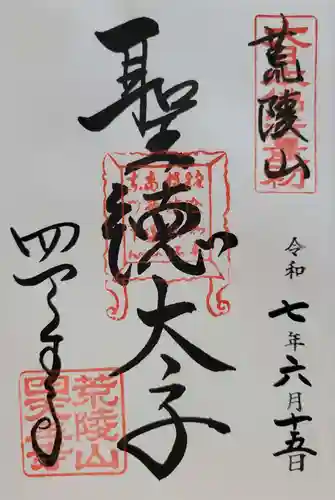 荒陵山
令和七年六月十五日
聖徳太子
四天王寺
荒陵山
四天王寺